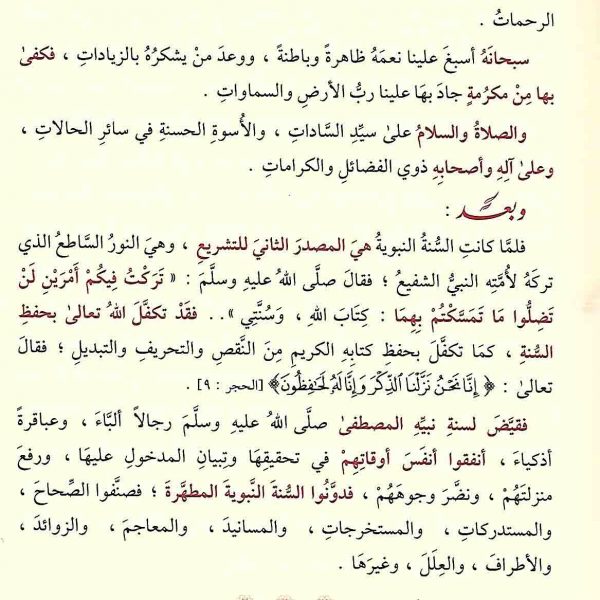 الرحماتُ .
سبحانَهُ أسبغَ علينا نعمَهُ ظاهرةً وباطنةً ، ووعدَ منْ يشكرُهُ بالزياداتِ ، فكفىٰ
بها مِنْ مكرُمةٍ جادَ بهَا علينا ربُّ الأرضِ والسماواتِ .
والصلاةُ والسلامُ علىٰ سيِّدِ السَّاداتِ ، والأُسوةِ الحسنةِ في سائرِ الحالاتِ ،
وعلىٰ آلِهِ وأصحابِهِ ذوي الفضائلِ والكراماتِ .
وبعد :
فلمَّا كانتِ السُّنةُ النبويةُ هيَ المصدرَ الثانيَ للتشريعِ ، وهيَ النورُ السَّاطعُ الذي
تركَهُ لأُمَّتِه النبيُّ الشفيعُ ؛ فقالَ صلَّى اللهُ عليهِ وسلَّمَ : « تَرَكْتُ فِيكُمْ أَمْرَيْنِ لَنْ
تَضِلُّوا مَا تَمَسَّكْتُمْ بِهِمَا : كِتَابَ اللهِ ، وَسُنَّتِي » . . فقَدْ تكفَّلَ اللهُ تعالىٰ بحفظِ
السُّنةِ ، كمَا تكفَّلَ بحفظِ كتابِهِ الكريمِ مِنَ النَّقصِ والتحريفِ والتبديلِ ؛ فقالَ
تعالىٰ : ﴿ إِنَّا نَحْنُ نَزَّلْنَا ٱلذِّكْرَ وَإِنَّا لَهُ لَحَٰفِظُونَ ﴾ [الحجر : ٩] .
فقيَّضَ لسنةِ نبيِّهِ المصطفىٰ صلَّى اللهُ عليهِ وسلَّمَ رجالاً ألبَّاءَ ، وعباقرةً
أذكياءَ ، أنفقوا أنفَسَ أوقاتِهِمْ في تحقيقِهَا وتِبيانِ المدخولِ عليهَا ، ورفعَ
منزلتَهُمْ ، ونضَّرَ وجوهَهُمْ ، فدوَّنُوا السُّنةَ النَّبويةَ المطهَّرةَ ؛ فصنَّفُوا الصِّحاحَ ،
والمستدركاتِ ، والمستخرجاتِ ، والمسانيدَ ، والمعاجمَ ، والزوائدَ ،
والأطرافَ ، والعِلَلَ ، وغيرَهَا .